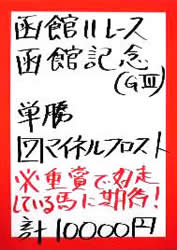 函館11レース
函館記念
(GⅢ)
単勝
7マイネルフロスト
※重賞で好走
している馬に期待!
計10000円